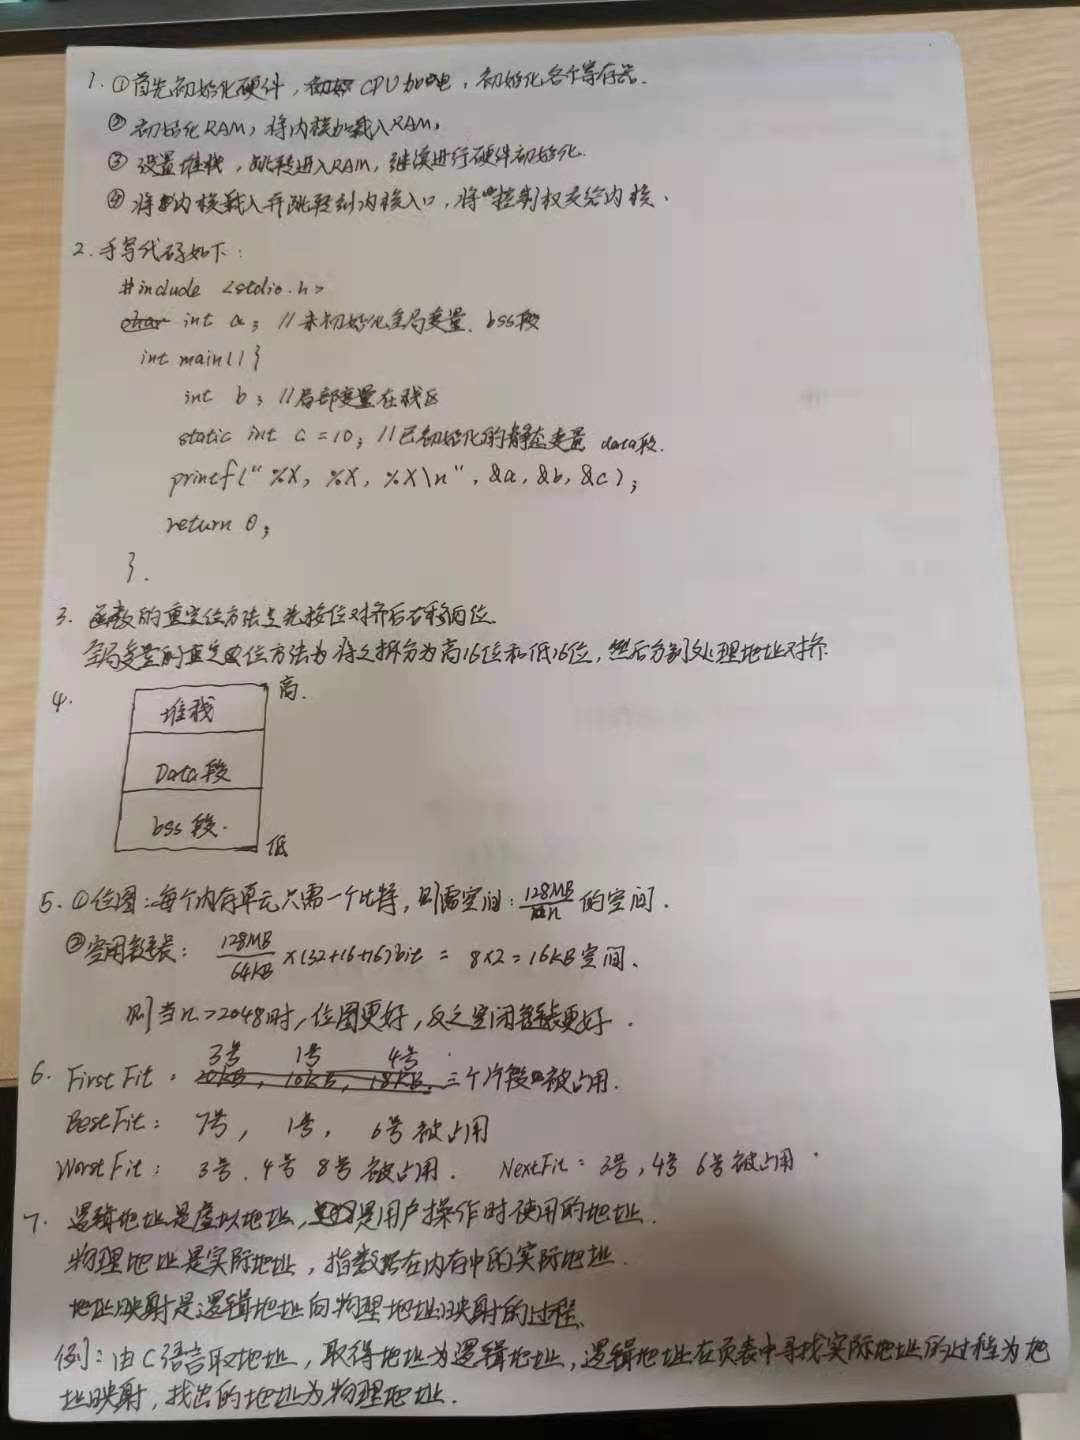 1. ①首先初始化硬件，CPU加电，初始化各个寄存器.
② 初始化RAM，将内核加载入RAM，
③ 设置堆栈，跳转进入RAM，继续进行硬件初始化.
④ 将内核载入并跳转到内核入口，将控制权交给内核.
2. 手写代码如下：
#include <stdio.h>
char int a; //未初始化全局变量. bss段
int main(){
int b; //局部变量在栈区
static int c=10; //已初始化的静态变量 data段.
printf("%X, %X, %X\n", &a, &b, &c);
return 0;
}.
3. 函数的重定位方法是先按位对齐后右移两位.
全局变量的重定位方法为将之拆分为高16位和低16位，然后分别处理地址对齐.
4. 高.
堆栈
Data段
bss段.
低
5. ①位图：每个内存单元只需一个比特，则需空间：128MB/n 的空间.
②空闲链表： 128MB/64KB ×(32+16+16)bit = 8×2=16KB空间.
则当n>2048时，位图更好，反之空闲链表更好.
3号 1号 4号
6. First Fit: 20KB, 10KB, 18KB. 三个片段被占用.
Best Fit: 7号， 1号， 6号被占用
Worst Fit: 3号. 4号 8号 被占用. Next Fit: 3号，4号 6号被占用.
7. 逻辑地址是虚拟地址，是用户操作时使用的地址.
物理地址是实际地址，指数据在内存中的实际地址.
地址映射是逻辑地址向物理地址映射的过程.
例：由C语言取地址，取得地址为逻辑地址，逻辑地址在页表中寻找实际地址的过程为地
址映射，找出的地址为物理地址.